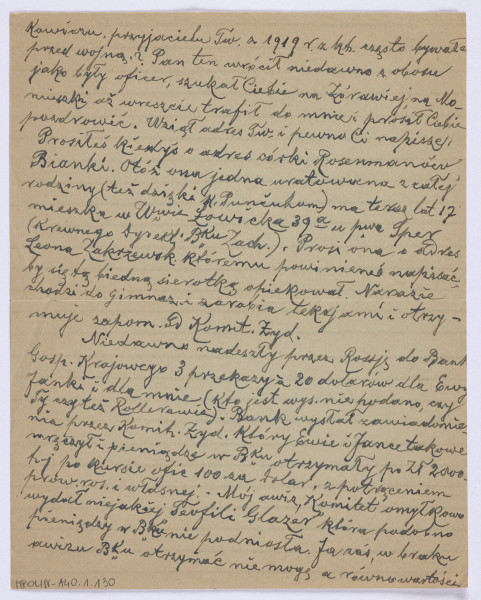 przyjacielu Tw. z 1919 r. z kh. często bywałeś
przed wojną? Pan ten wrócił niedawno z obozu
jako były oficer, szukał Ciebie na Żórawiej, na Mo-
niuszki aż wreszcie trafił do mnie i prosił Ciebie
pozdrowić. Wziął adres Tw. i pewno Ci napisze.
Prosiłeś kiedyś o adres córki Rosenmanów
Bianki. Otóż ona jedna uratowana z całej
rodziny (też dzięki) ma teraz lat 17
mieszka w W-wie Łowicka 39a u pwa Sper
(krewnego dyrekt. Bku Zach.). Prosi ona o adres
Leona Zakrzewsk. któremu powinieneś napisać
by się tą biedną sierotką opiekował. Narazie
chodzi do gimnaz. i zarabia lekcjami i otrzy-
muje zapom. od Komit. Żyd.
Niedawno nadeszły przez Rosję do Bank
Gosp. Krajowego 3 przekazy à 20 dolarów dla Ewy
Janki i dla mnie (kto jest wys. nie podano, czy
Ty czy też). Bank wysłał zawiadomie-
nia przez Komit. Żyd. który Ewie i Jance takowe
wręczył i pieniądze w Bku otrzymały po Zł 2000
t.j. po kursie ofic 100 za dolar, z potrąceniem
prow. ros. i własnej. - Mój awiz, Komitet omyłkowo
wydał niejakiej Teofili Glazer która podobno
pieniędzy w Bku nie podniosła. Ja zaś, w braku
awizu Bku otrzymać nie mogę a równowartości
MPOLIN-A40.1.130